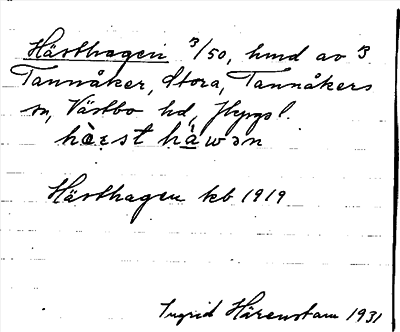 Hästhagen 3/50, hmd av 3
Tannåker, Stora, Tannåkers
sn, Västbo hd,
hästhagen kb 1919
Ingrid Härenstam 1931